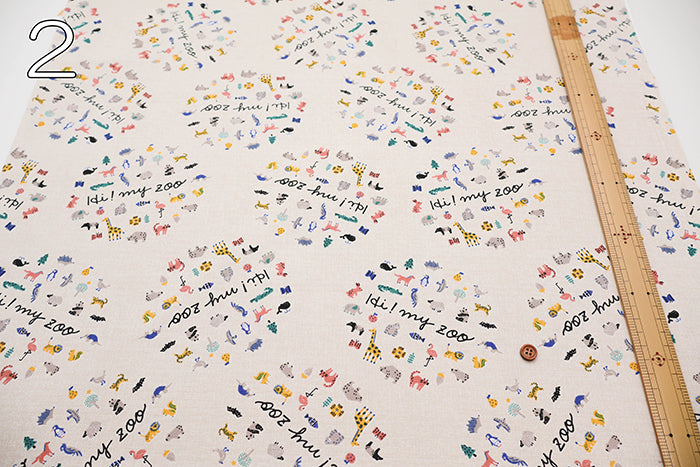 2
Hi! my zoo
Hi! my zoo
Hi! my zoo
Hi! my zoo
my zoo
Hi! my zoo
Hi! my zoo
Hi! my zoo
Hi! my zoo
Hi! my zoo
Hi! my zoo
my zoo
zoo